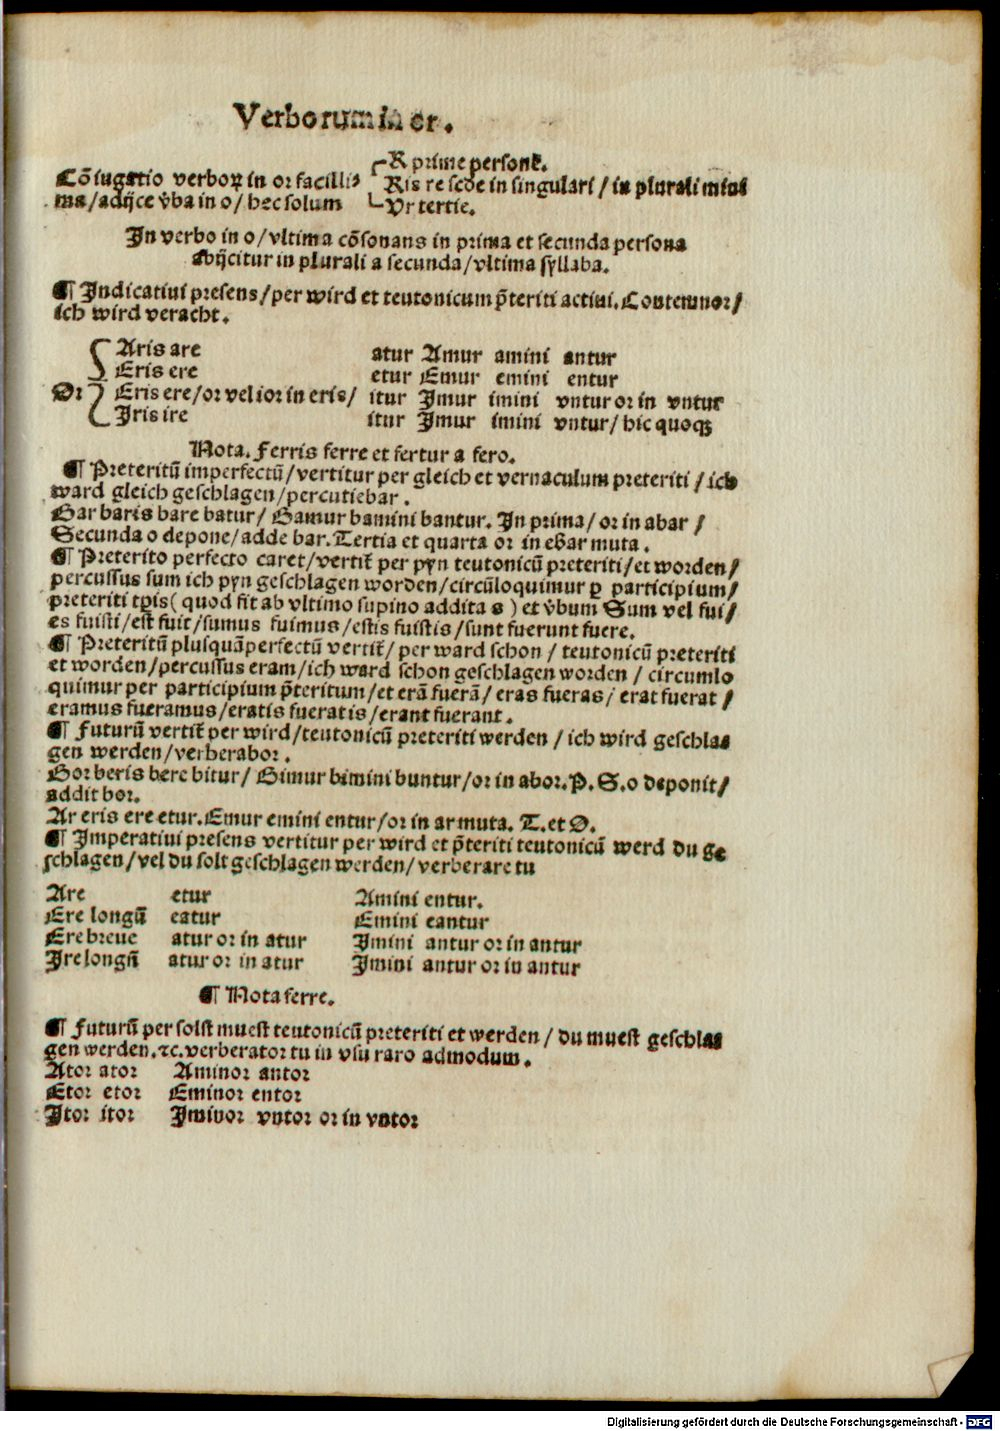 Verborum in or.
Cōiugatio verboꝝ in or facillis
ma/adijce v̄ba in o/hec solum
R prime persone.
Ris re secūde in singulari/in plurali mini
Vr tertie.
In verbo in o/vltima cōsonans in prima et secunda persona
abijcitur in plurali a secunda/vltima syllaba.
¶ Indicatiui presens/per wird et teutonicum p̄teriti actiui. Contemnor/
ich wird veracht.
Or
Aris are atur Amur amini antur
Eris ere etur Emur emini entur
Eris ere/or vel ior in eris/ itur Imur imini vntur or in vntur
Iris ire itur Imur imini vntur/hic quoqꝫ
Nota. Ferris ferre et fertur a fero.
¶ Preteritū imperfectū/vertitur per gleich et vernaculum preteriti/ich
ward gleich geschlagen/percutiebar.
Bar baris bare batur/Bamur bamini bantur. In prima/or in abar/
Secunda o depone/adde bar. Tertia et quarta or in ebar muta.
¶ Preterito perfecto caret/vertit̄ per pyn teutonicū preteriti/et worden/
percussus sum ich pyn geschlagen worden/circūloquimur ꝑ participium/
preteriti tp̄is(quod fit ab vltimo supino addita s) et v̄bum Sum vel fui/
es fuisti/est fuit/sumus fuimus/estis fuistis/sunt fuerunt fuere.
¶ Preteritū plusquāperfectū vertit̄/per ward schon/teutonicū preteriti
et worden/percussus eram/ich ward schon geschlagen worden/circumlo
quimur per participium p̄teritum/et erā fuerā/eras fueras/erat fuerat/
eramus fueramus/eratis fueratis/erant fuerant.
¶ Futurū vertit̄ per wird/teutonicū preteriti werden/ich wird geschla⸗
gen werden/verberabor.
Bor beris bere bitur/Bimur bimini buntur/or in abor. P. S. o deponit/
addit bor.
Ar eris ere etur. Emur emini entur/or in ar muta. T. et Q.
¶ Imperatiui presens vertitur per wird et p̄teriti teutonicū werd du ge
schlagen/vel du solt geschlagen werden/verberare tu
Are etur Amini entur.
Ere longū eatur Emini eantur
Ere breue atur or in atur Imini antur or in antur
Ire longū atur or in atur Imini antur or in antur
¶ Nota ferre.
¶ Futurū per solst muest teutonicū preteriti et werden/du muest geschla⸗
gen werden.ꝛc.verberator tu in vsu raro admodum.
Ator ator Aminor antor
Etor etor Eminor entor
Itor itor Iminor vntor or in vntor
Digitalisierung gefördert durch die Deutsche Forschungsgemeinschaft - DFG